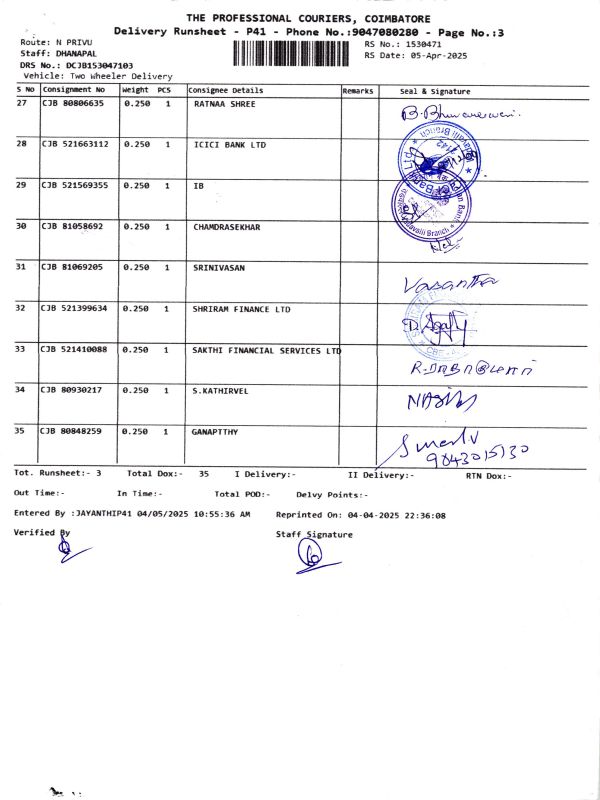 THE PROFESSIONAL COURIERS, COIMBATORE
Delivery Runsheet - P41 - Phone No.:9047080280 - Page No.:3
Route: N PRIVU
RS No.: 1530471
Staff: DHANAPAL
RS Date: 05-Apr-2025
DRS No.: DCJB153047103
Vehicle: Two Wheeler Delivery
S No Consignment No Weight PCS Consignee Details Remarks Seal & Signature
27 CJB 80806635 0.250 1 RATNAA SHREE
28 CJB 521663112 0.250 1 ICICI BANK LTD
29 CJB 521569355 0.250 1 IB
30 CJB 81058692 0.250 1 CHAMDRASEKHAR
31 CJB 81069205 0.250 1 SRINIVASAN Vasantha
32 CJB 521399634 0.250 1 SHRIRAM FINANCE LTD
33 CJB 521410088 0.250 1 SAKTHI FINANCIAL SERVICES LTD
34 CJB 80930217 0.250 1 S.KATHIRVEL
35 CJB 80848259 0.250 1 GANAPTTHY
9043015130
Tot. Runsheet:- 3 Total Dox:- 35 I Delivery:- II Delivery:- RTN Dox:-
Out Time:- In Time:- Total POD:- Delvy Points:-
Entered By :JAYANTHIP41 04/05/2025 10:55:36 AM Reprinted On: 04-04-2025 22:36:08
Verified By Staff Signature